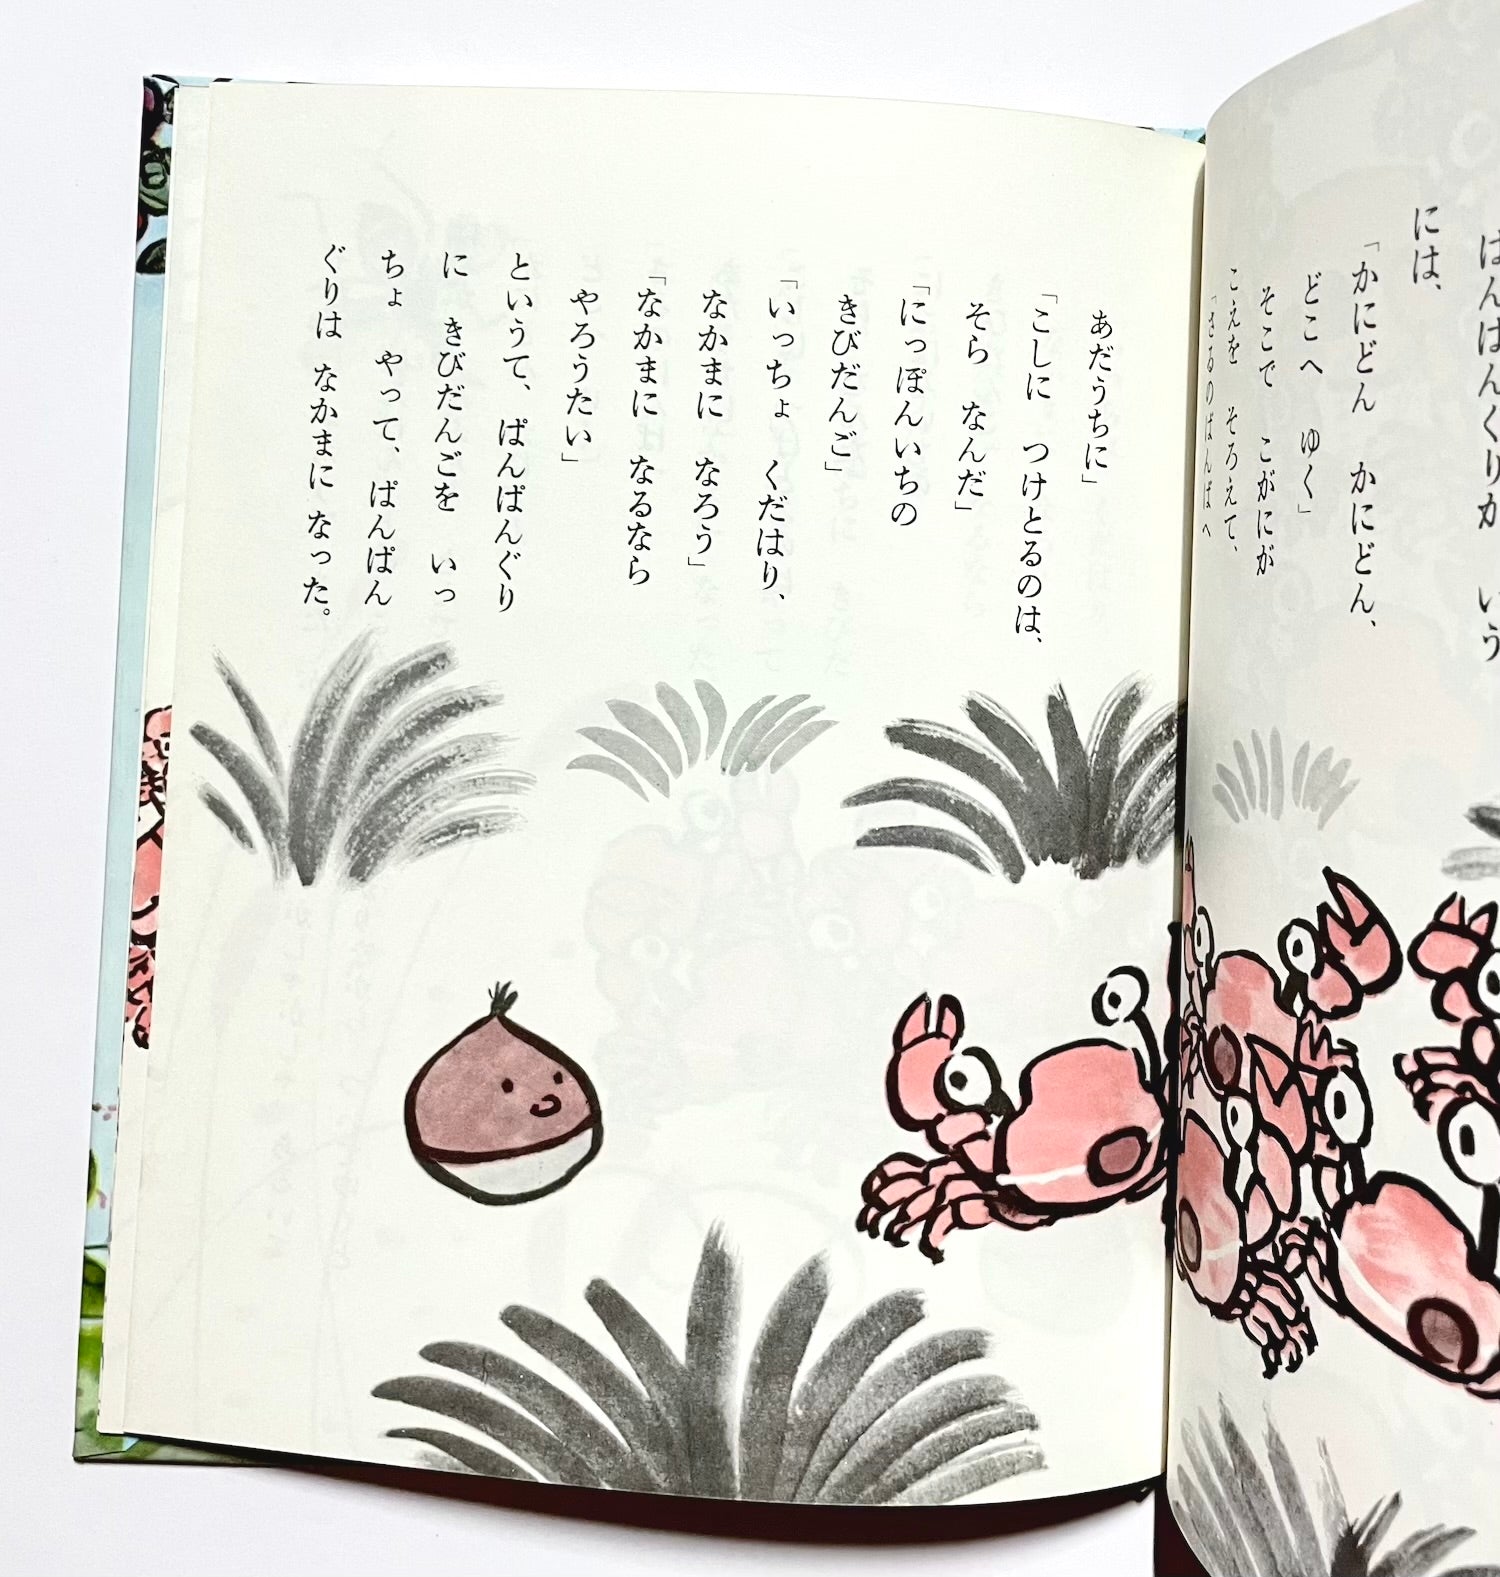 ぱんぱんぐりが いう
には、
「かにどん かにどん、
どこへ ゆく」
そこで こがにが
こえを そろえて、
「さるのばんばへ
あだうちに」
「こしに つけとるのは、
そら なんだ」
「にっぽんいちの
きびだんご」
「いっちょ くだはり、
なかまに なろう」
「なかまに なるなら
やろうたい」
というて、ぱんぱんぐり
に きびだんごを いっ
ちょ やって、ぱんぱん
ぐりは なかまに なった。